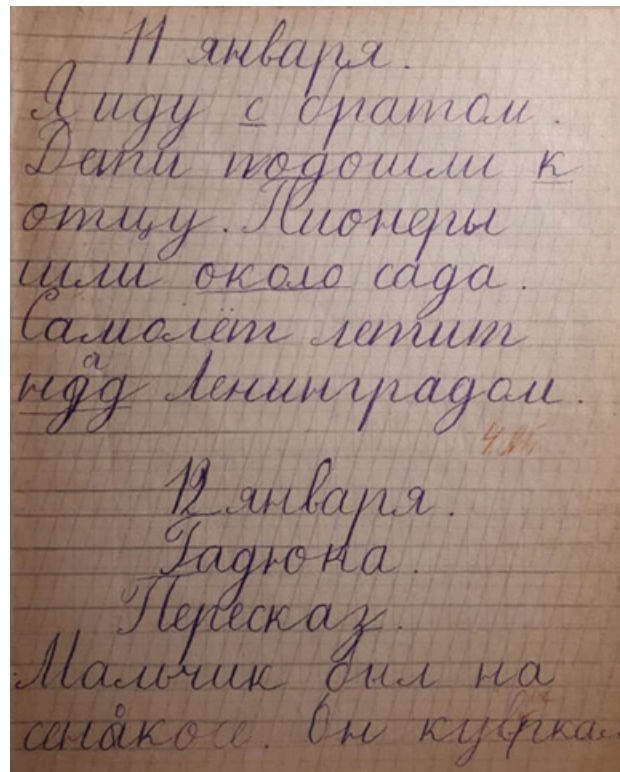 11 января.
Я иду с братом.
Дети подошли к
отцу. Пионеры
шли около сада.
Самолёт летит
над Ленинградом.
12 января.
Гадюка.
Пересказ.
Мальчик был на
сенакосе. Он